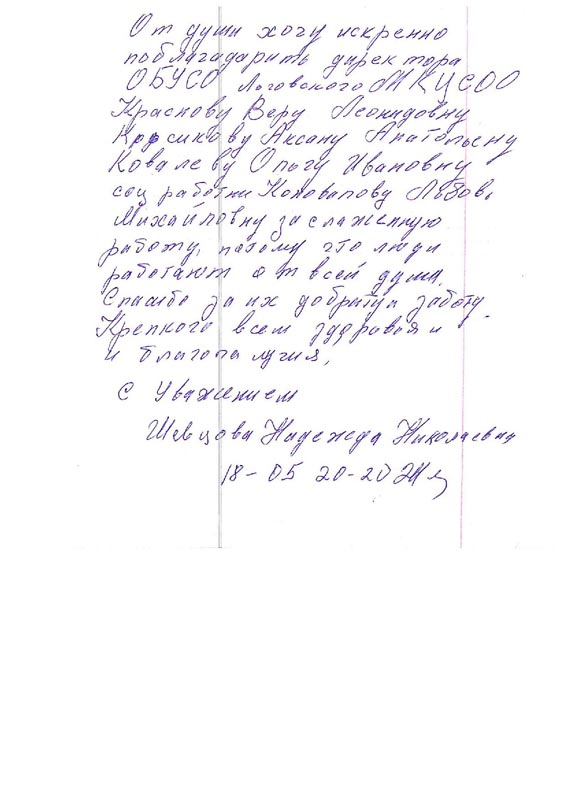 От души хочу искренно
поблагадарить директора
ОБУСО Логовского МКЦСОО
Краснову Веру Леонидовну
Аксану Анатольену
Ковалеву Ольгу Ивановну
соц работни Коновалову Любовь
Михайловну за слаженную
работу, потому что люди
работают от всей души.
Спасибо за их доброту и заботу.
Крепкого всем здоровья и
и благополучия,
С Уважением
Шевцова Надежда Николаевна
18-05 20-20